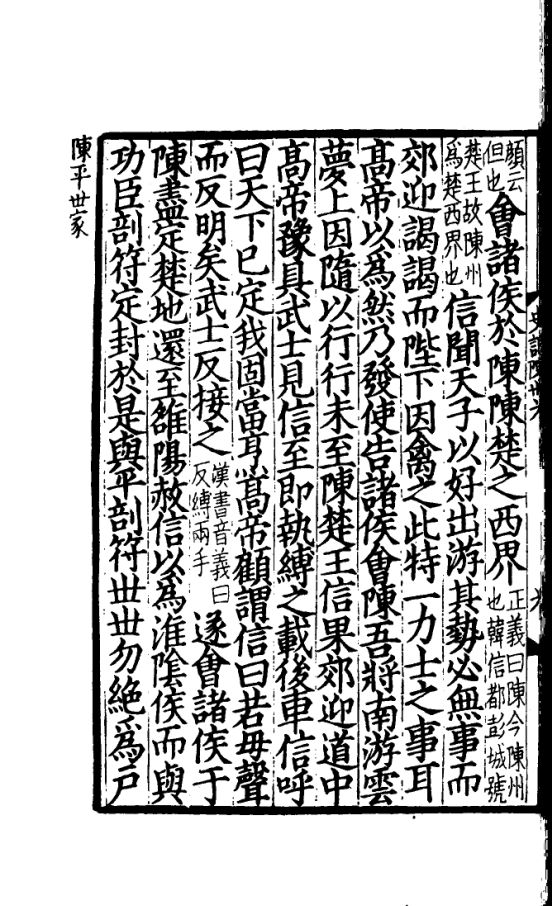 顏云
但也會諸侯於陳陳楚之西界正義曰陳今陳州
也韓信都彭城號
楚王故陳州
爲楚西界也信聞天子以好出游其勢必無事而
郊迎謁謁而陛下因禽之此特一力士之事耳
高帝以爲然乃發使告諸侯會陳吾將南游雲
夢上因隨以行行未至陳楚王信果郊迎道中
高帝豫具武士見信至即執縛之載後車信呼
曰天下已定我固當烹高帝顧謂信曰若毋聲
而反明矣武士反接之漢書音義曰
反縛兩手遂會諸侯于
陳盡定楚地還至雒陽赦信以爲淮陰侯而與
功臣剖符定封於是與平剖符世世勿絶爲戶
陳平世家